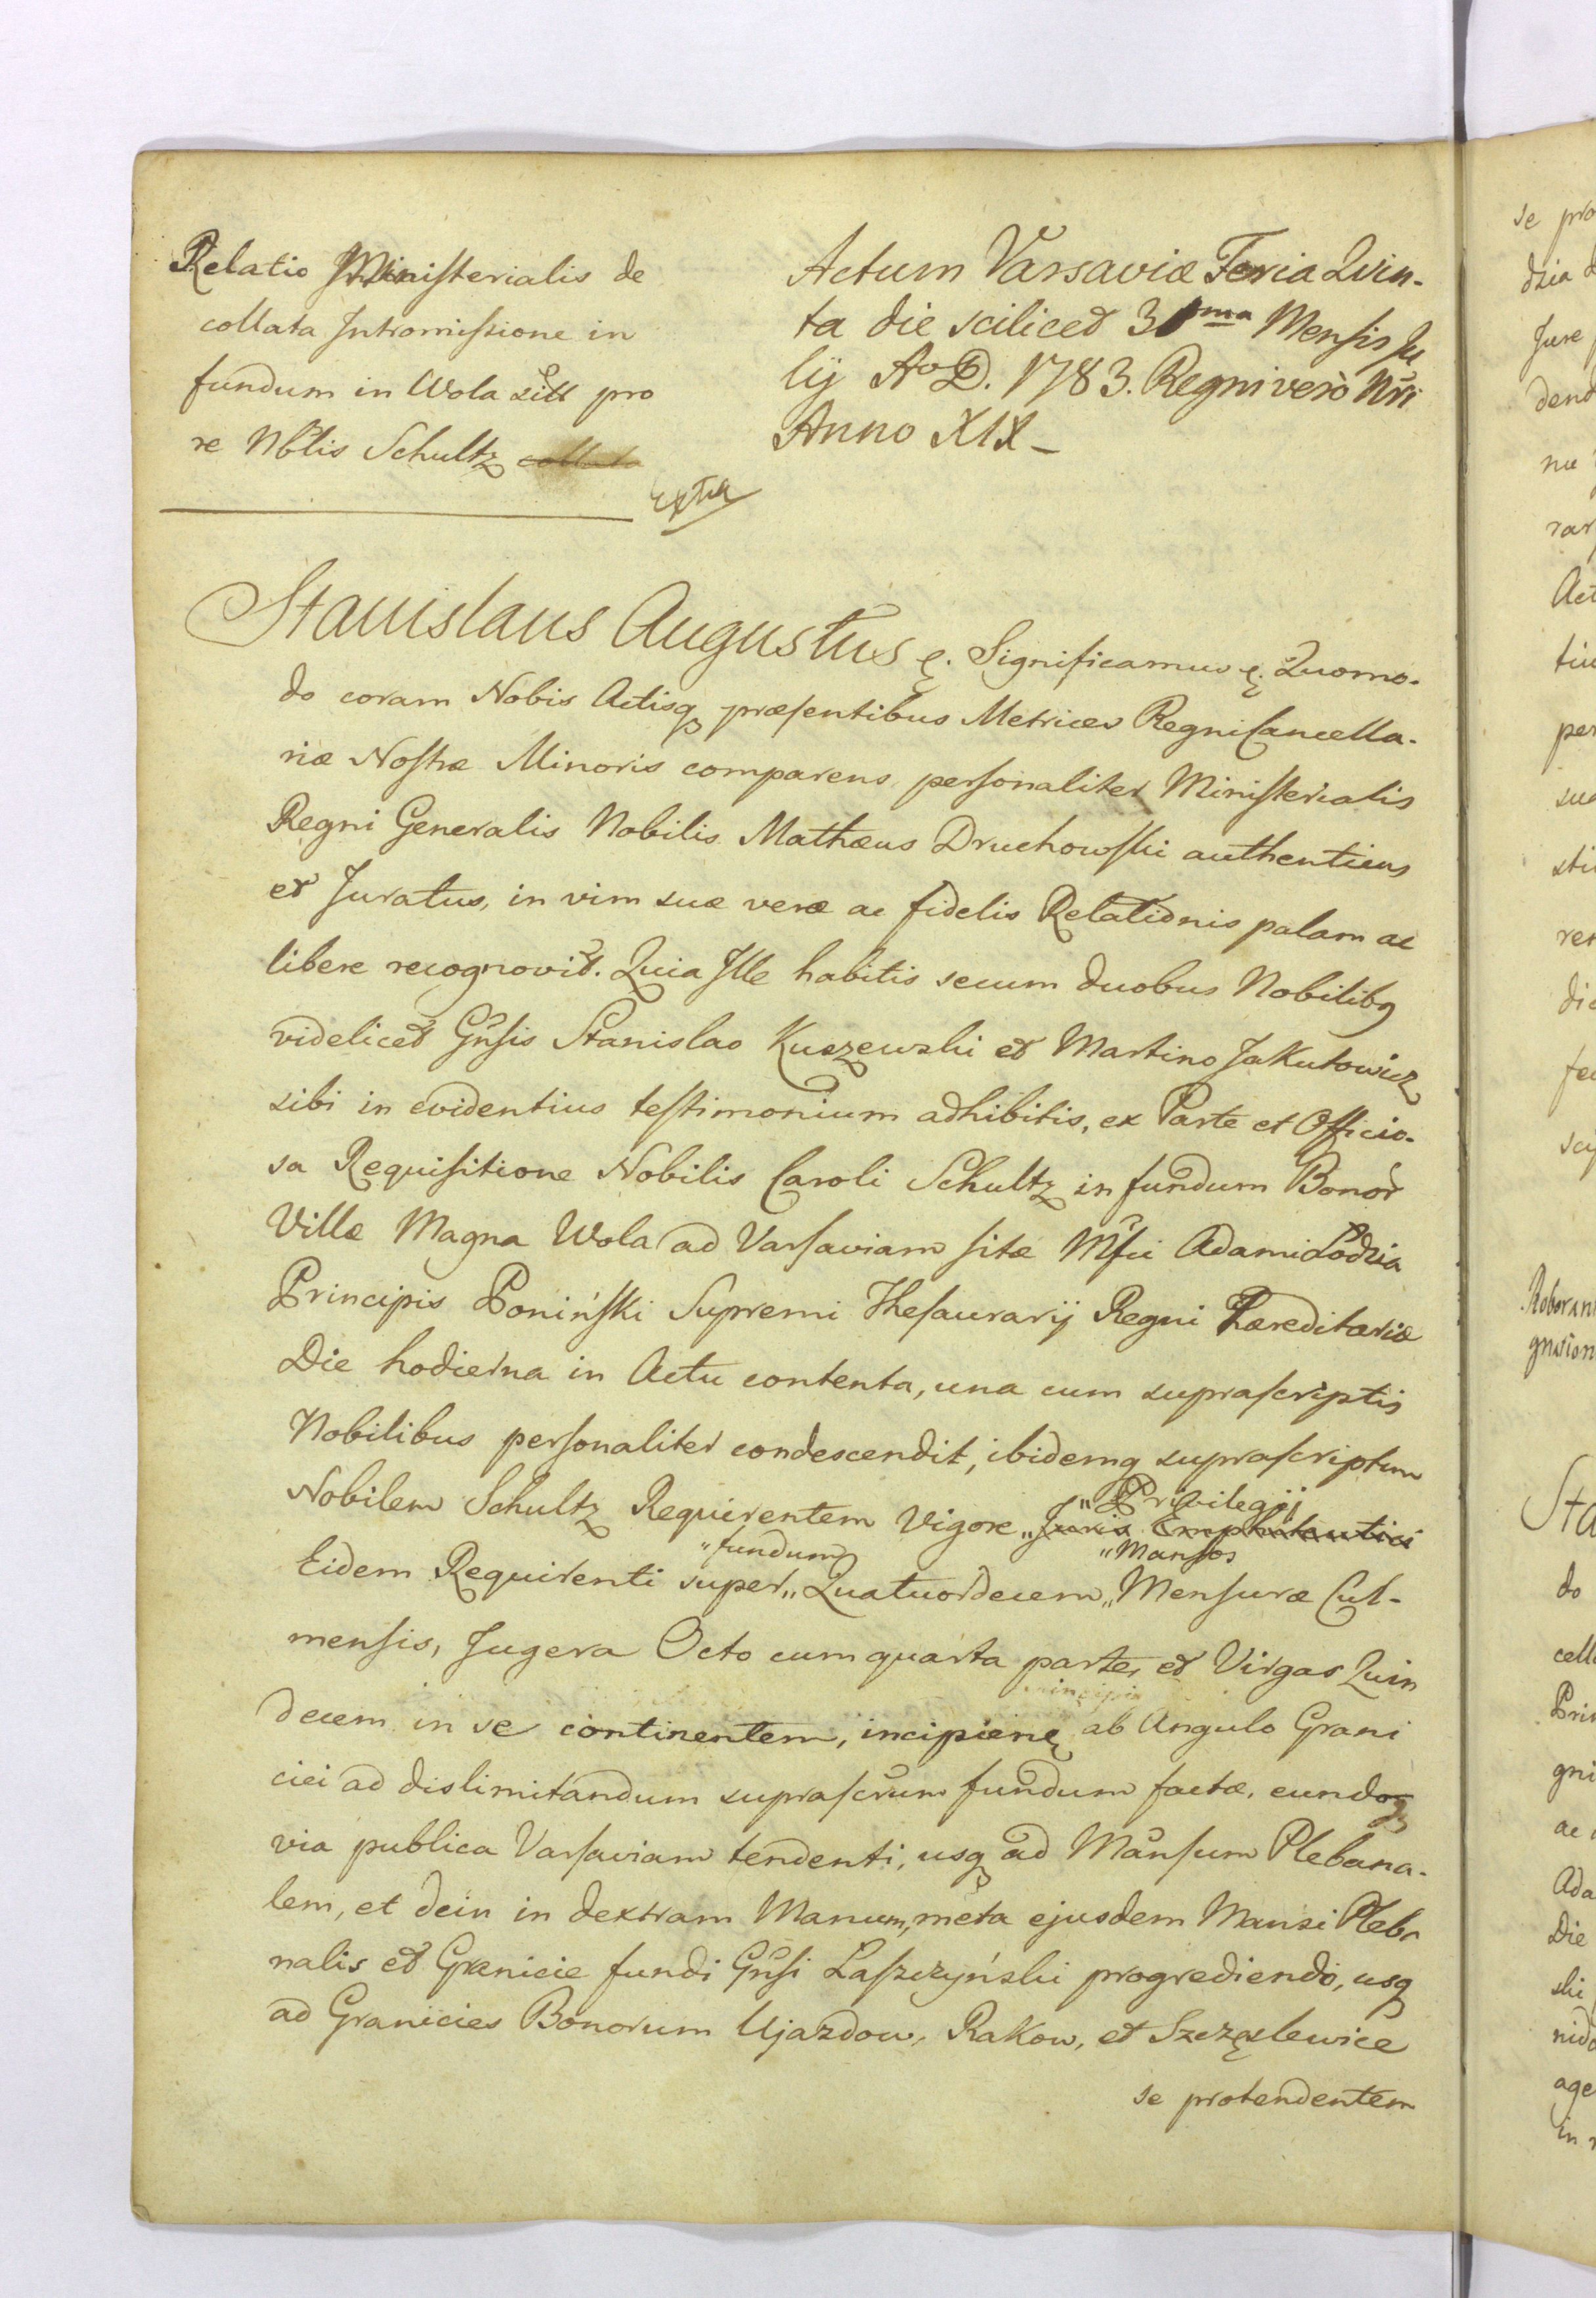 Relatio Ministerialis de
collata Intromissione in
fundum in Wola sitt pro
re Nblis Schultz collata
Extra
Actum Varsaviæ Feria Qvin-
ta die scilicet 31ma Mensis Ju
lij Ao D. 1783. Regni verò Nri
Anno XIX_
Stanislaus Augustus &. Significamus &. Quomo-
do coram Nobis Actisq præsentibus Metrices Regni Cancella-
riæ Nostræ Minoris comparens personaliter Ministerialis
Regni Generalis Nobilis Mathæus Druchowski authenticus
et Juratus, in vim suæ veræ ac fidelis Relationis palam ac
libere recognovit. Quia Ille habitis secum duobus Nobilibq
videlicet Gnsis Stanislao Kuszewski et Martino Jakutowicz
sibi in evidentius testimonium adhibitis, ex Parte et Officio-
sa Requisitione Nobilis Caroli Schultz in fundum Bonor
Villæ Magna Wola ad Varsaviam sitæ Mfci Adami Łodzia
Principis Poniński Supremi Thesaurarij Regni Hæreditariæ
Die hodierna in Actu contenta, una cum suprascriptis
Nobilibus personaliter condescendit, ibidemq suprascriptum
Nobilem Schultz Requirentem Vigore „Juris Emphiteutici
„Privilegij
Eidem Requirenti super„ Quatuordecem„ Mensuræ Cul-
„fundum „Mansos
mensis, Jugera Octo cum quarta parte, et Virgas Quin
decem in se continentem, incipien ab Angulo Grani
ciei ad dislimitandum suprascrum fundum factæ, eundoq
via publica Varsaviam tendenti, usq ad Mansum Plebana-
lem, et dein in dextram Manum, meta ejusdem Mansi Pleba
nalis et Granicie fundi Gnsi Łaszczyński progrediendo, usq
ad Granicies Bonorum Ujazdow, Rakow, et Szczęslewice
se protendentem